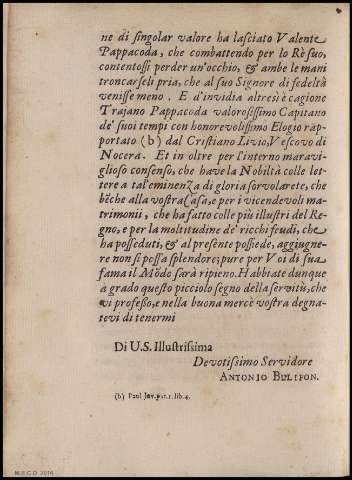 ne di singolar valore ha lasciato Valente
Pappacoda, che combattendo per lo Rè suo,
contentossi perder un'occhio, & ambe le mani
troncarseli pria, che al suo Signore di fedeltà
venisse meno. E d'invidia altresì è cagione
Trajano Pappacoda valorosissimo Capitano
de' suoi tempi con honorevolissimo Elogio rap-
portato (b) dal Cristiano Livio, Vescovo di
Nocera. Et in oltre per l'interno maravi-
glioso consenso, che have la Nobilità colle let-
tere a tal'eminenza di gloria sorvolarete, che
bẽche alla vostra Casa, e per i vicendevoli ma-
trimonii, che ha fatto colle più illustri del Re-
gno, e per la moltitudine de' ricchi feudi, che
ha posseduti, & al presente possiede, aggiugne-
re non si possa splendore; pure per Voi di sua
fama il Mõdo sarà ripieno. Habbiate dunque
a grado questo picciolo segno della servitù, che
vi professo, e nella buona mercè vostra degna-
tevi di tenermi
Di U.S. Illustrissima
Devotissimo Servidore
ANTONIO BULIFON.
(b) Paul Jov. lib.4.
M.E.C.D. 2016